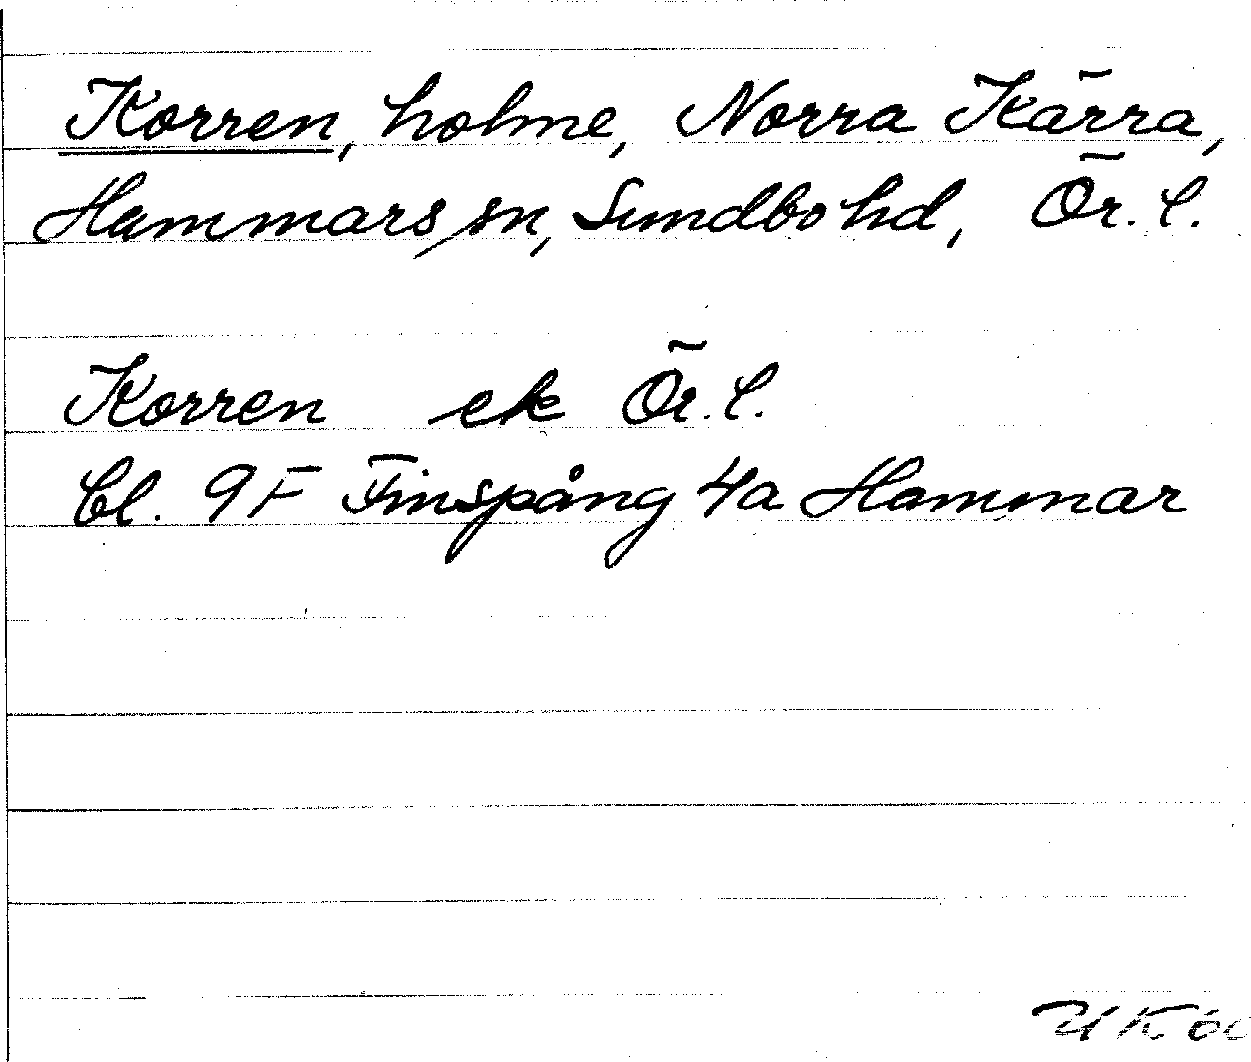 Korren, holme, Norra Kärra,
Hammars sn, Sundbo hd, Ör. l.
Korren ek Ör. l.
Bl. 9F Finspång 4a Hammar